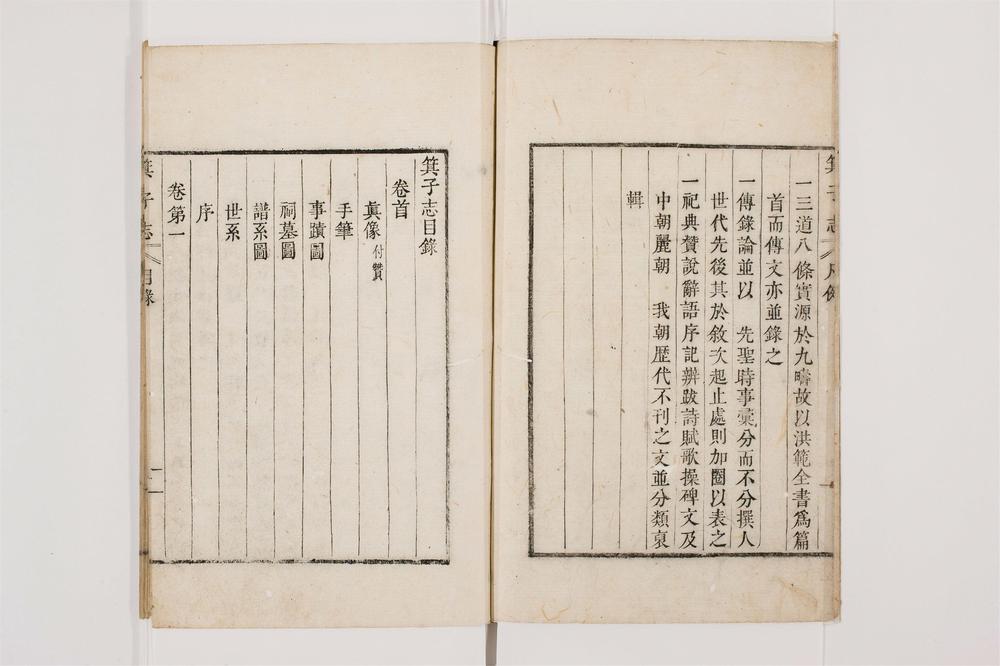 箕子志 凡例
一三道八條實源於九疇故以洪範全書爲篇
首而傳文亦並錄之
一傳錄論並以　先聖時事彙分而不分撰人
世代先後其於敘次起止處則加圈以表之
一祀典贊說辭語序記辨跋詩賦歌操碑文及
中朝麗朝　我朝歷代不刊之文並分類裒
輯
箕子志目錄
卷首
眞像 付贊
手筆
事蹟圖
祠墓圖
譜系圖
世系
序
卷第一
箕子志 目錄